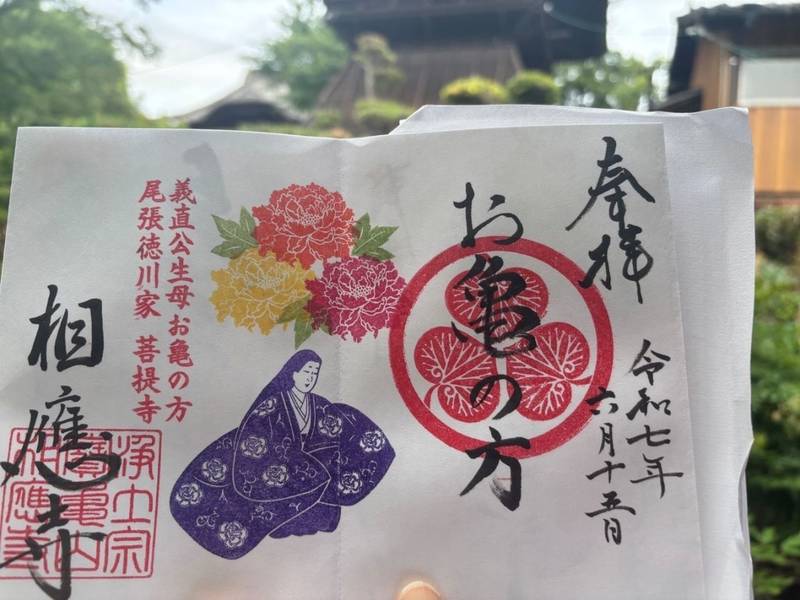 奉拝
令和七年
六月十五日
お亀の方
義直公生母 お亀の方
尾張徳川家 菩提寺
相應寺
浄土宗